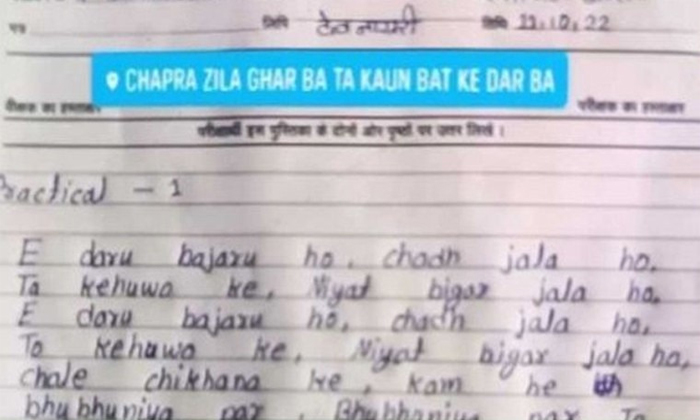 पत्र लिपि देवनागरी तिथि 11.10.22
CHAPRA ZILA GHAR BA TA KAUN BAT KE DAR BA
वीक्षक का हस्ताक्षर परीक्षक का हस्ताक्षर
परीक्षार्थी इस पुस्तिका के दोनों ओर पृष्ठों पर उत्तर लिखें।
Practical - 1
E daru bajaru ho, chadh jala ho,
Ta kehuwa ke, Niyat bigar jala ho,
E daru bajaru ho, chadh jala ho,
To kehuwa ke, Niyat bigar jala ho,
chale chikhana ke, kam he
bhubhuniya par, Bhubhaniya par, Ta